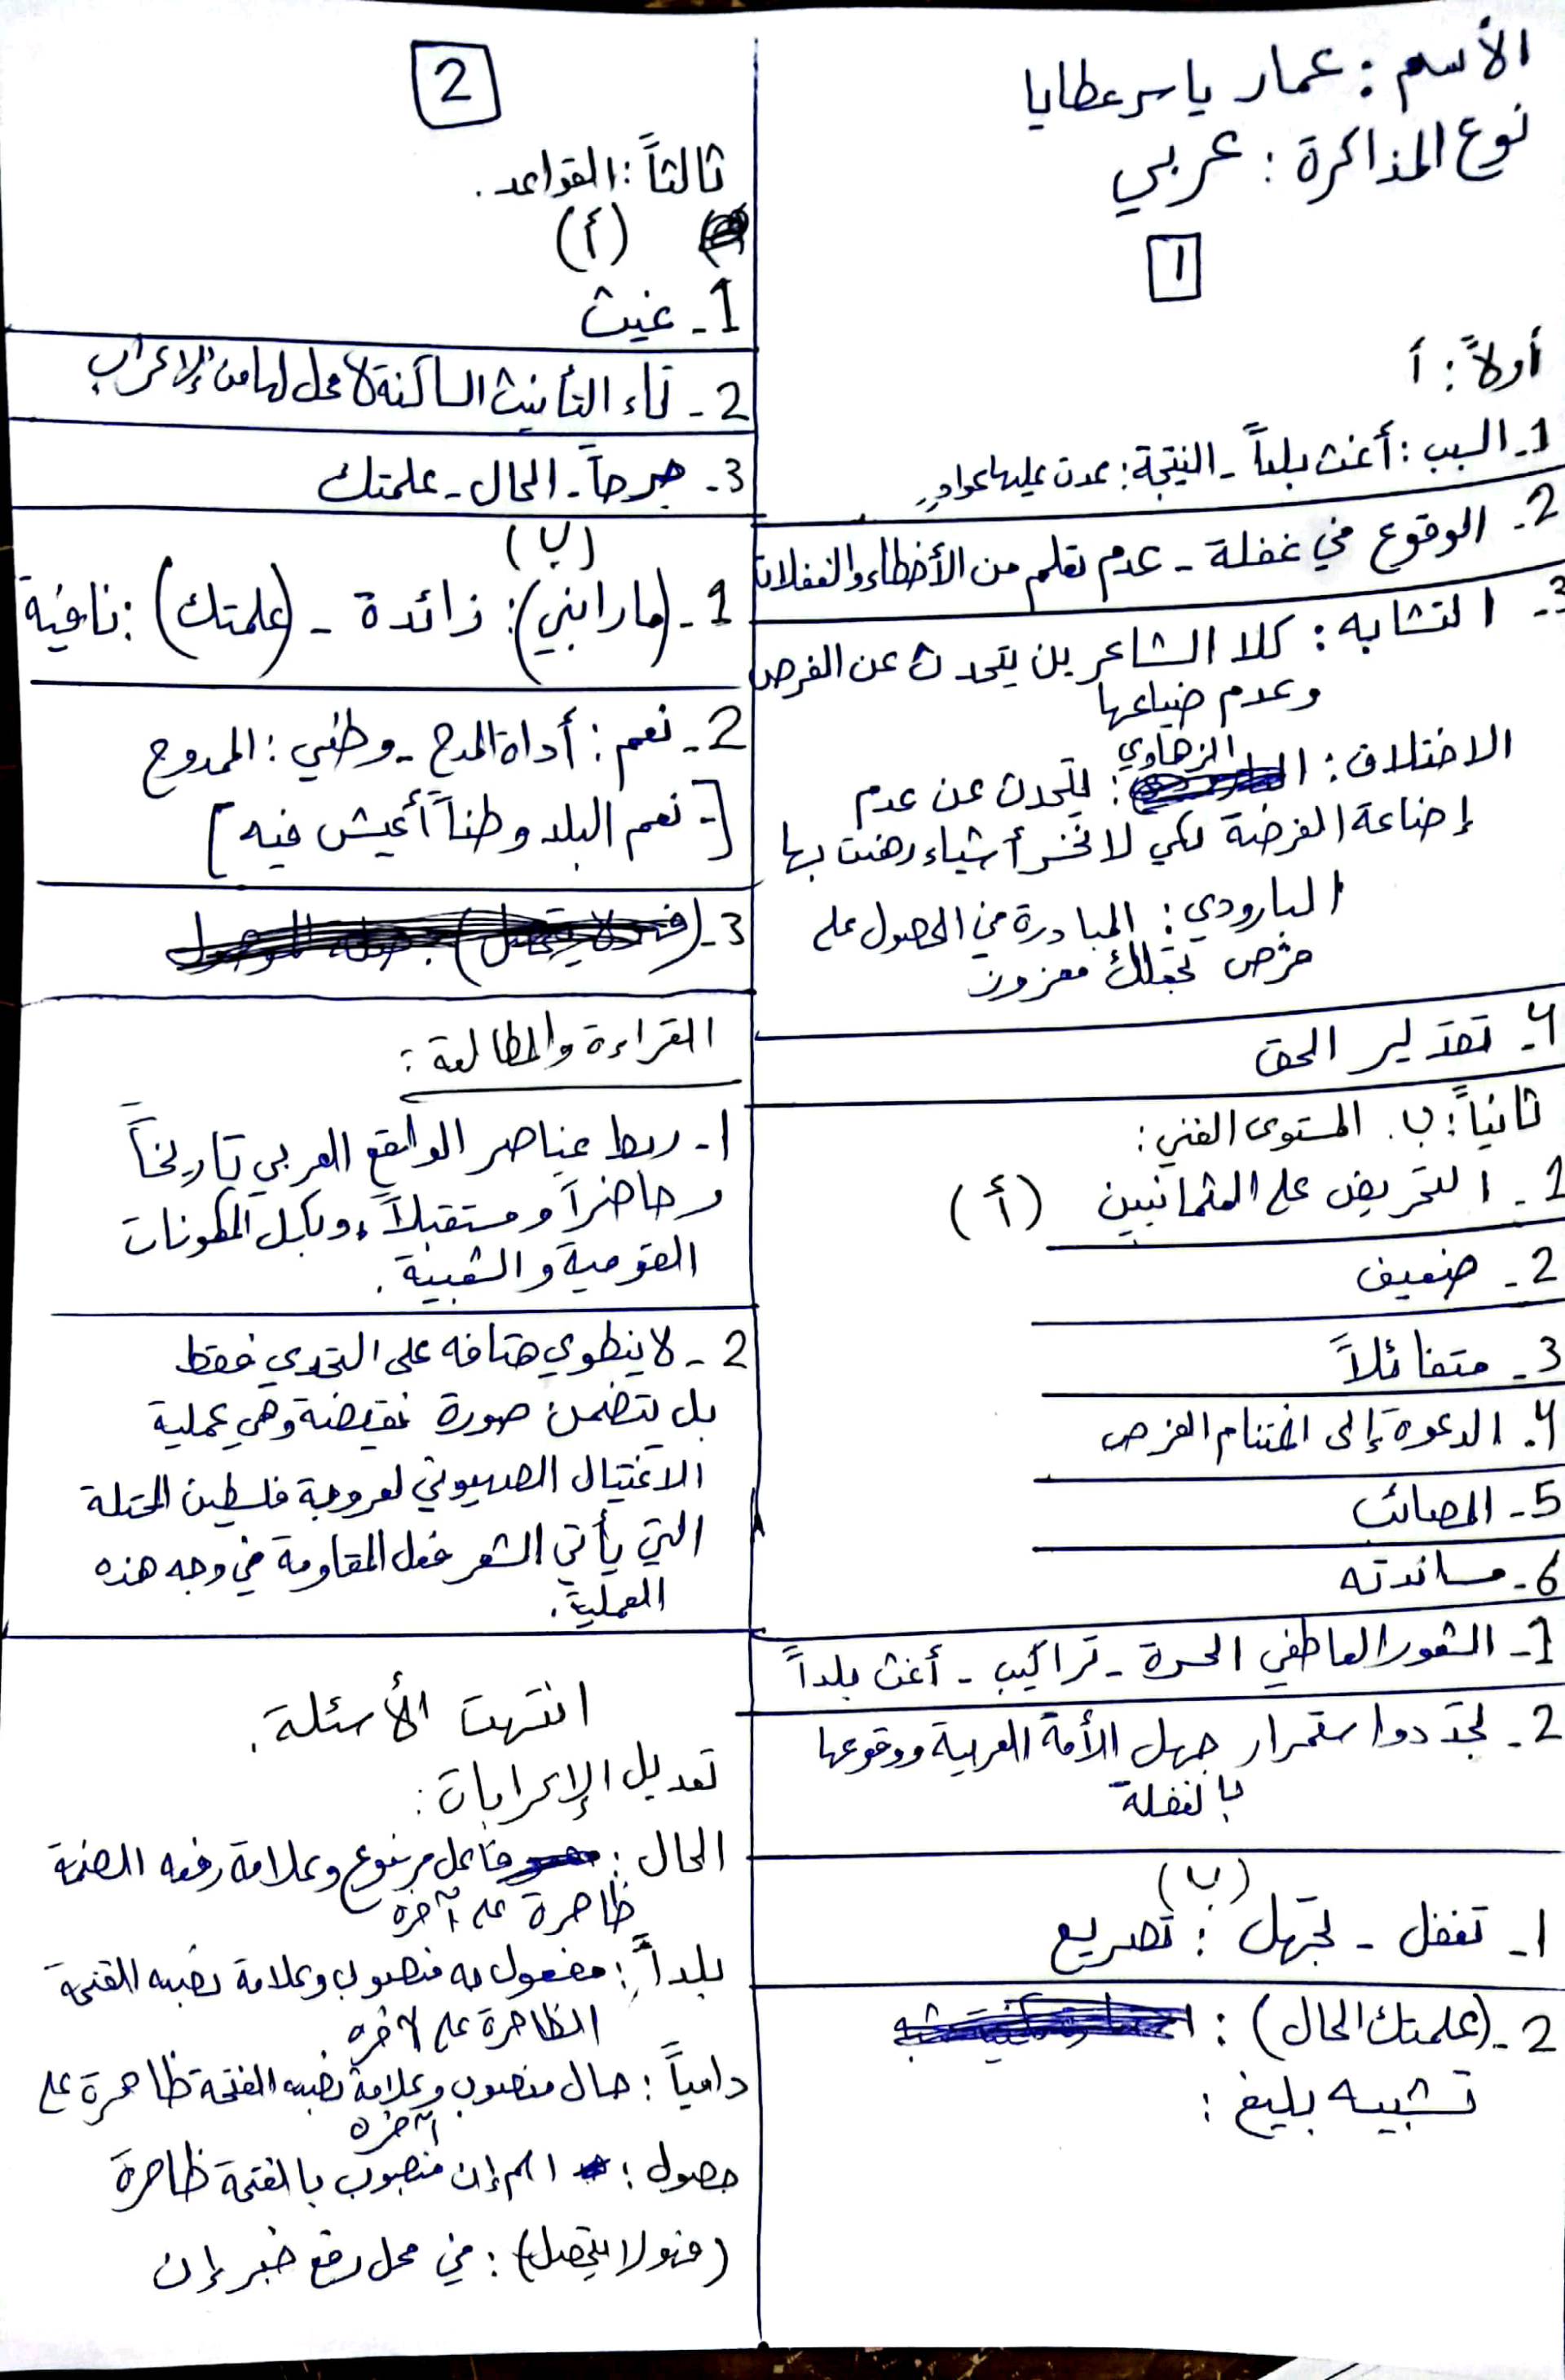 الأسم : عمار ياسر عطايا
نوع المذاكرة : عربي
1
أولاً : أ
1- السبب : أغث بلداً - النتيجة : عدت عليها عوادٍ
2- الوقوع في غفلة - عدم تعلم من الأخطاء والغفلات
3- التشابه : كلا الشاعرين يتحدث عن الفرص
وعدم ضياعها
الاختلاف : الزهاوي : يتحدث عن عدم
إضاعة الفرصة لكي لا نخسر أشياء رهنت بها
البارودي : المبادرة في الحصول على
فرص تجعلك معزوز
4- تقدير الحق
ثانياً : ب. المستوى الفني :
1- التحريض على العثمانيين (أ)
2- ضعيف
3- متفائلاً
4- الدعوة إلى اغتنام الفرص
5- المصائب
6- مساندته
1- الشعور العاطفي الحسرة - تراكيب - أغث بلداً
2- تجدد واستمرار جهل الأمة العربية ووقوعها
بالغفلة
(ب)
1- تغفل - تجهل : تصريع
2- (علمتك الحال) :
تشبيه بليغ :
2
ثالثاً : القواعد .
(أ)
1- غيث
2- تاء التأنيث الساكنة لا محل لها من الإعراب
3- جرحاً - الحال - علمتك
(ب)
1- (ما رابني) : زائدة - (علمتك) : نافية
2- نعم : أداة المدح - وطني : الممدوح
[- نعم البلد وطناً أعيش فيه]
3-
القراءة والمطالعة :
1- ربط عناصر الواقع العربي تاريخاً
وحاضراً ومستقبلاً، وبكل المكونات
القومية والشعبية .
2- لا ينطوي هتافه على التحدي فقط
بل يتضمن صورة نقيضة وهي عملية
الاغتيال الصهيوني لعروبة فلسطين المحتلة
التي يأتي الشعر فعل المقاومة في وجه هذه
العملية .
انتهت الأسئلة .
تعديل الإعرابات :
الحال : فاعل مرفوع وعلامة رفعه الضمة
ظاهرة على آخره
بلداً : مفعول به منصوب وعلامة نصبه الفتحة
الظاهرة على آخره
دامياً : حال منصوب وعلامة نصبه الفتحة ظاهرة على
آخره
حصول : اسم إن منصوب بالفتحة ظاهرة
(فهو لا يتحصل) : في محل رفع خبر إن